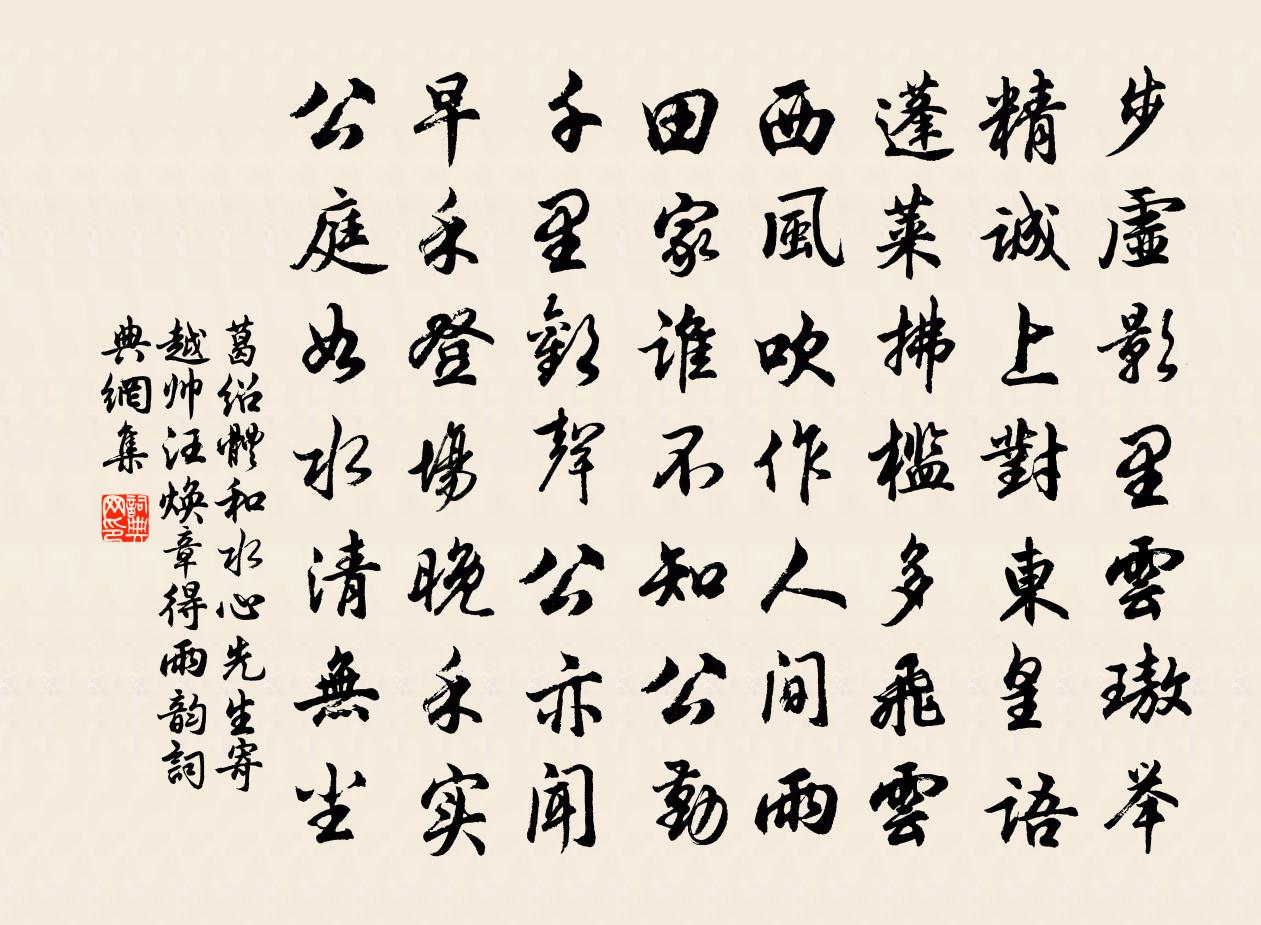 步虛影里雲璈举
精誠上對東皇語
蓬萊拂檻多飛雲
西風吹作人间雨
田家誰不知公勤
千里歡聲公亦聞
早禾登場晚禾实
公庭如水清無尘
葛绍體和水心先生寄
越帅汪焕章得雨韵詞
典網集
詞典
网印